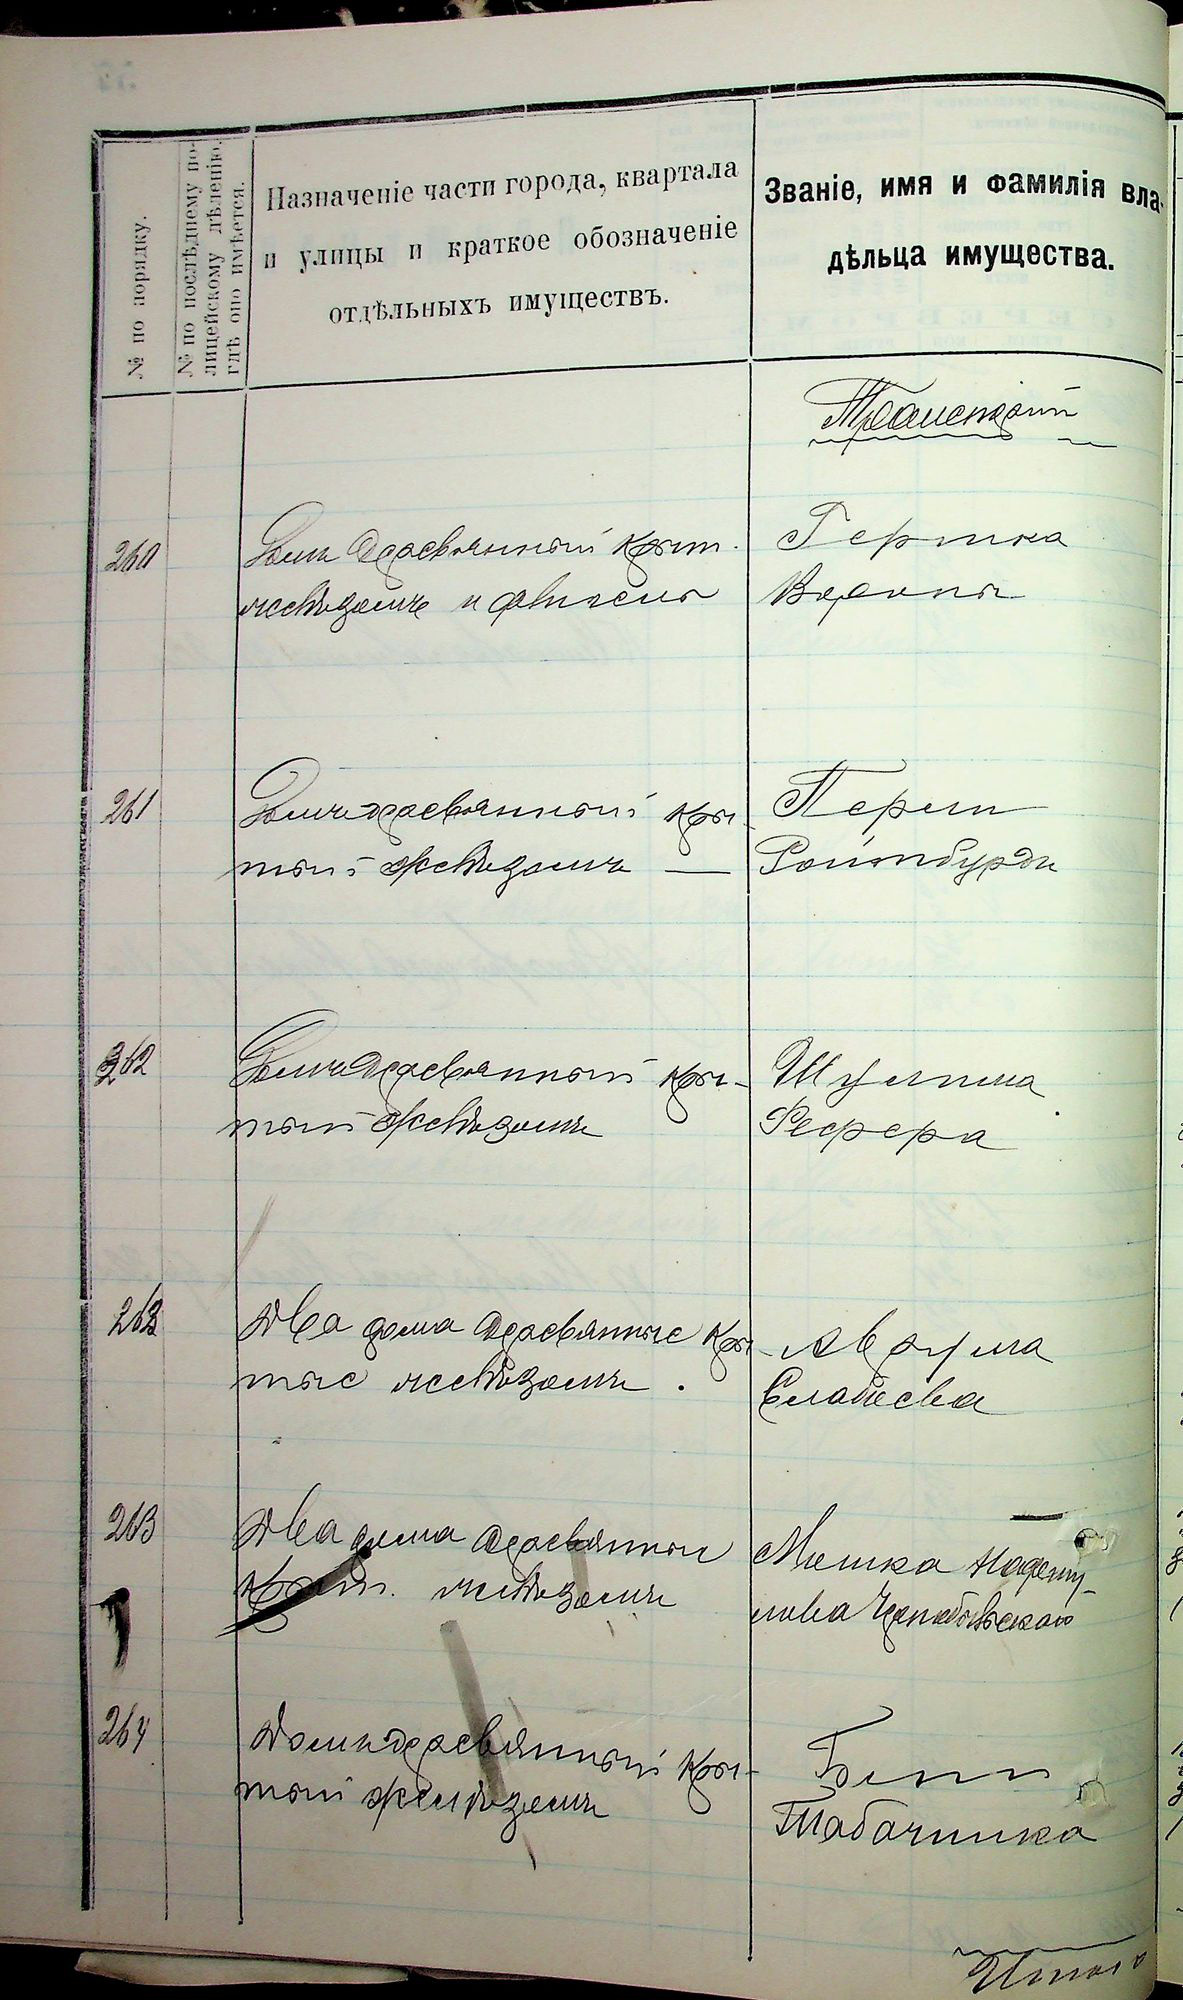 № по порядку.
№ по послѣднему по-
лицейскому дѣленію,
гдѣ оно имѣется.
Назначеніе части города, квартала
и улицы и краткое обозначеніе
отдѣльныхъ имуществъ.
Званіе, имя и фамилія вла-
дѣльца имущества.
Транспортъ
260
Домъ деревянный крыт.
желѣзомъ и
Гершка
Вороны
261
Домъ деревянный кры-
тый желѣзомъ —
Перли
Ройтбурда
262
Домъ деревянный кры-
тый желѣзомъ
Шулима
Фефера
Два дома деревянные кры-
тые желѣзомъ.
Аврума
263
Два дома деревянные
крыт. желѣзомъ
Мошка
264
Домъ деревянный кры-
тый желѣзомъ
Табачника
Итого